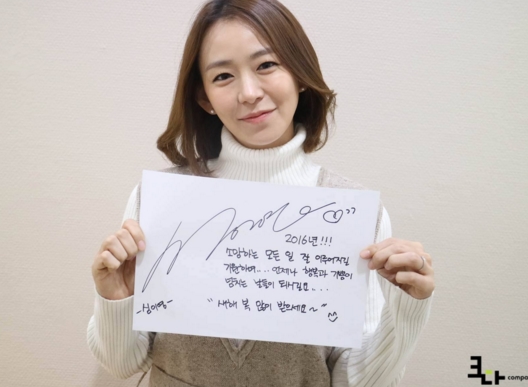 2016년!!!
소망하는 모든 일 잘 이루어지길
기원하며.... 언제나 행복과 기쁨이
넘치는 날들이 되시길요...
-심이영-
"새해 복 많이 받으세요~"
크다
compa